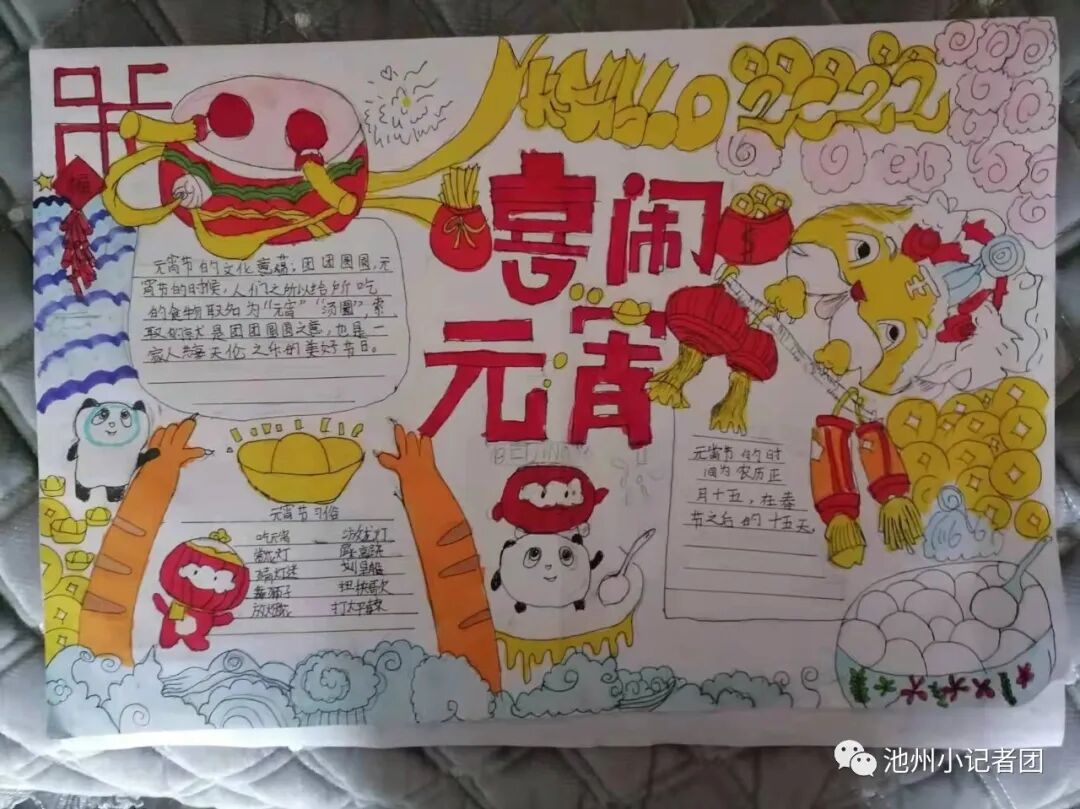 HELLO 2022
喜闹
元宵
福
元宵节的文化意蕴,团团圆圆,元
宵节的时候,人们之所以给所吃
的食物取名为“元宵”“汤圆”,索
取好就是团团圆圆之意,也是一
家人 天伦之乐的美好节日。
元宵节习俗
吃元宵
赏花灯
猜灯谜
舞狮子
踩高跷
划旱船
扭秧歌
打太平鼓
BEIJING
元宵节的时
间为农历正
月十五,在春
节之后的十五天。
池州小记者团